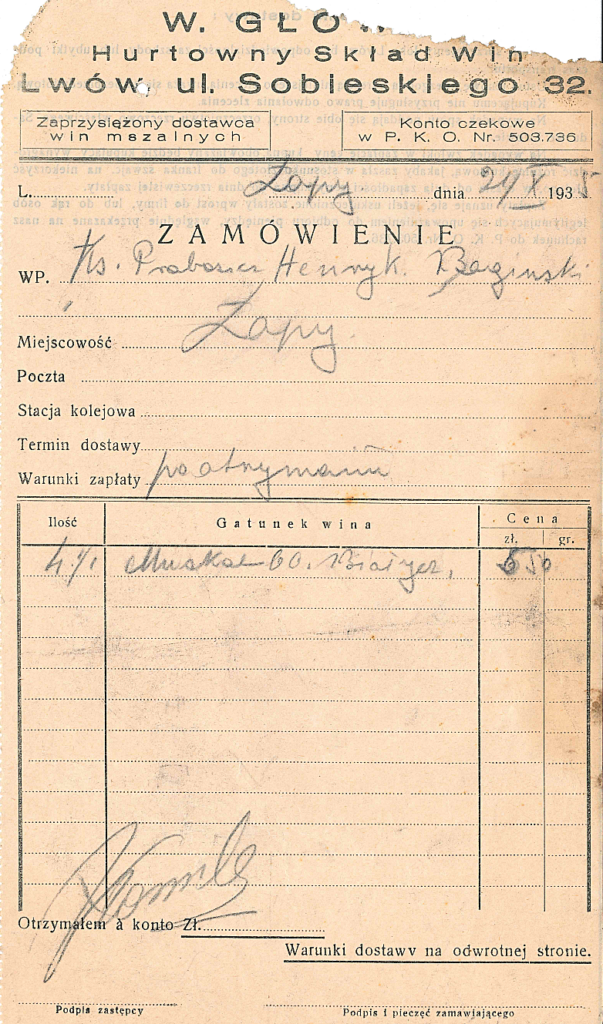 W. GŁOW
Hurtowny Skład Win
Lwów, ul. Sobieskiego 32.
Zaprzysiężony dostawca
win mszalnych
Konto czekowe
w P. K. O. Nr. 503.736
L. Łapy dnia 29/X 1935
ZAMÓWIENIE
WP. Ks. Proboszcz Henryk. Baginski
Miejscowość Łapy
Poczta
Stacja kolejowa
Termin dostawy
Warunki zapłaty po otrzymaniu
Ilość Gatunek wina Cena
zł. gr.
4/1 Muskat 60. 6 50
Otrzymałem à konto Zł.
Warunki dostawy na odwrotnej stronie.
Podpis zastępcy Podpis i pieczęć zamawiającego